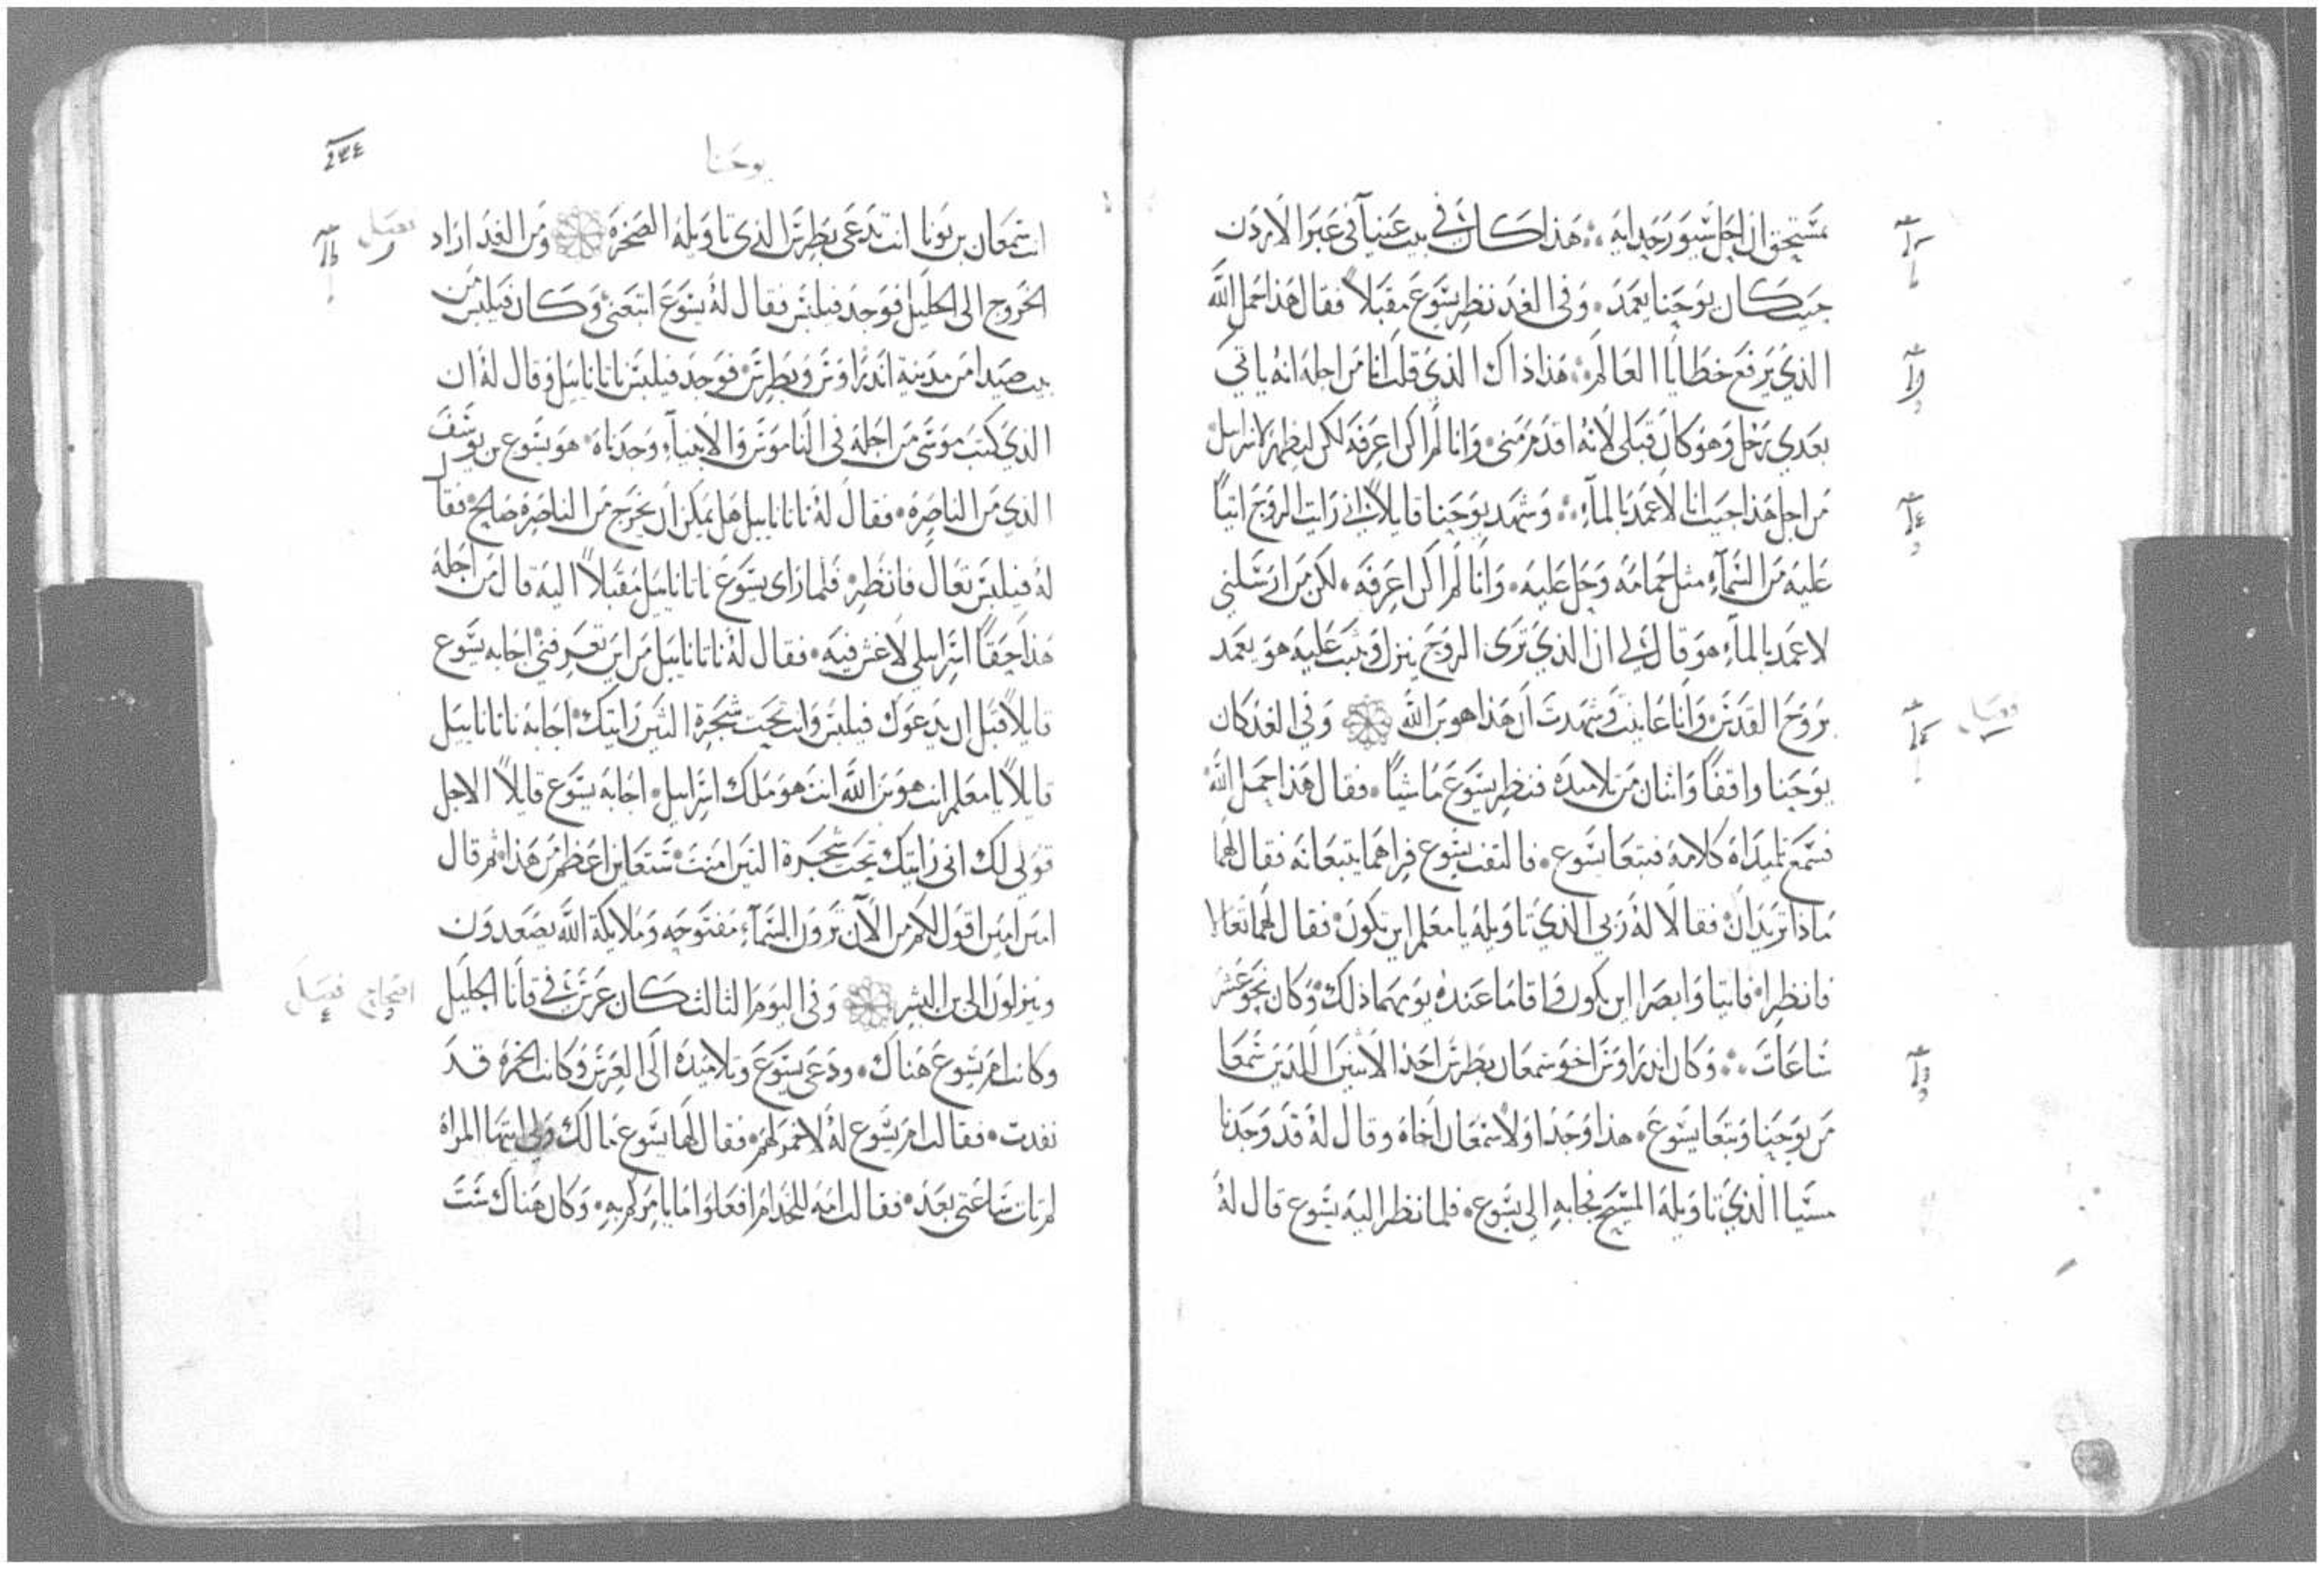 بمستحق ان احل سيور حدايه ۞ هذا كان في بيت عنيا في عبر الاردن
حيث كان يوحنا يعمد ۞ وفي الغد نظر يسوع مقبلاً فقال هذا حمل الله
الذي يرفع خطايا العالم ۞ هذا ذاك الذي قلت انا من اجله انه ياتي
بعدي رجل وهو كان قبلي لانه اقدم مني ۞ وانا لم اكن اعرفه لكن ليظهر لاسراييل
من اجل هذا جيت انا لاعمد بالمآء ۞ وشهد يوحنا قايلاً اني رايت الروح اتياً
عليه من السمآء مثل حمامه وحل عليه ۞ وانا لم اكن اعرفه ۞ لكن من ارسلني
لاعمد بالمآء هو قال لي ان الذي ترى الروح ينزل ويثبت عليه هو يعمد
بروح القدس ۞ وانا عاينت وشهدت ان هذا هو بن الله ۞ وفي الغد كان
فصل
يوحنا واقفاً واثنان من تلاميذه فنظر يسوع ماشياً ۞ فقال هذا حمل الله
فسمع تلميذاه كلامه فتبعا يسوع ۞ فالتفت يسوع فراهما يتبعانه فقال لهما
ماذا تريدان ۞ فقالا له ربي الذي تاويله يا معلم اين تكون ۞ فقال لهما تعالا
فانظرا ۞ فاتيا وابصرا اين يكون واقاما عنده يومهما ذلك وكان نحو عشر
ساعات ۞ وكان اندراوس اخو سمعان بطرس احد الاثنين اللذين سمعا
من يوحنا وتبعا يسوع ۞ هذا وجد اولا سمعان اخاه وقال له قد وجدنا
مسيا الذي تاويله المسيح فجابه الى يسوع ۞ فلما نظر اليه يسوع قال له
يوحنا
انت سمعان بن يونا انت تدعى بطرس الذي تاويله الصخرة ۞ ومن الغد اراد
فصل
الخروج الى الجليل فوجد فيلبس فقال له يسوع اتبعني وكان فيلبس من
بيت صيدا من مدينة اندراوس وبطرس ۞ فوجد فيلبس ناتاناييل وقال له ان
الذي كتب موسى من اجله في الناموس والانبياء وجدناه ۞ هو يسوع بن يوسف
الذي من الناصره ۞ فقال له ناتاناييل هل يمكن ان يخرج من الناصره صالح ۞ فقال
له فيلبس تعال فانظر ۞ فلما راى يسوع ناتاناييل مقبلاً اليه قال من اجله
هذا حقاً اسراييلي لا غش فيه ۞ فقال له ناتاناييل من اين تعرفني ۞ اجابه يسوع
قايلاً قبل ان يدعوك فيلبس وانت تحت شجرة التين رايتك ۞ اجابه ناتاناييل
قايلاً يا معلم انت هو بن الله انت هو ملك اسراييل ۞ اجابه يسوع قايلاً الاجل
قولي لك اني رايتك تحت شجرة التين امنت ۞ ستعاين اعظم من هذا ثم قال
امين امين اقول لكم من الآن ترون السمآء مفتوحه وملايكة الله يصعدون
وينزلون الى بن البشر ۞ وفي اليوم الثالث كان عرس في قانا الجليل
اصحاح فصل
وكانت ام يسوع هناك ۞ ودعي يسوع وتلاميذه الى العرس وكانت الخمره قد
نفدت ۞ فقالت ام يسوع له لا خمر لهم ۞ فقال لها يسوع مالك ولي ايتها المراة
لم تات ساعتي بعد ۞ فقالت امه للخدام افعلوا ما يامركم به ۞ وكان هناك ست